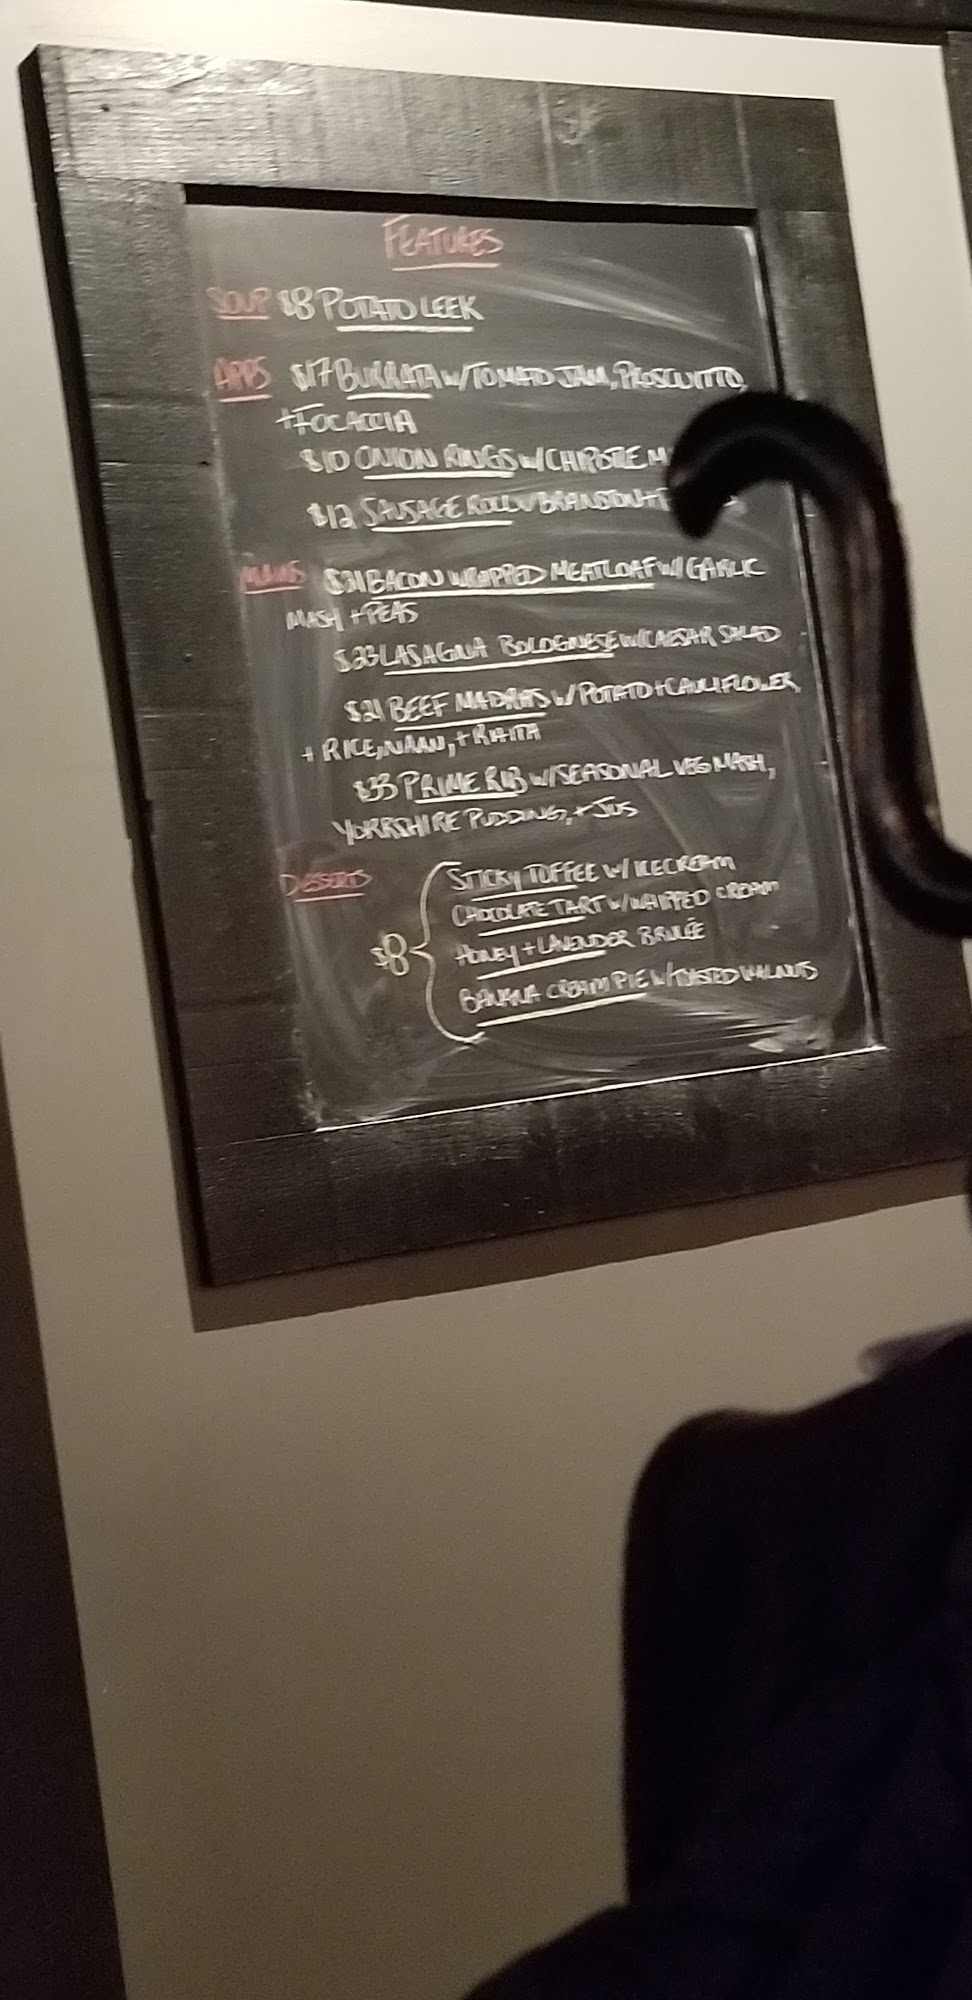 FEATURES
SOUP $8 POTATO LEEK
APPS $17 BURRATA W/ TOMATO JAM, PROSCUITTO,
+ FOCACCIA
$10 ONION RINGS W/ CHIPOTLE
$12 SAUSAGE ROLL
MAINS BACON WRAPPED MEATLOAF W/ GARLIC
MASH + PEAS
$23 LASAGNA BOLOGNESE W/ CAESAR SALAD
$21 BEEF MADRAS W/ POTATO + CAULIFLOWER,
+ RICE, NAAN, + RIAITA
$33 PRIME RIB W/ SEASONAL VEG MASH,
YORKSHIRE PUDDING, + JUS
DESSERTS
STICKY TOFFEE W/ ICECREAM
CHOCOLATE TART W/ WHIPPED CREAM
$8
HONEY + LAVENDER BRULÉE
BANANA CREAM PIE W/ TOASTED WALNUTS